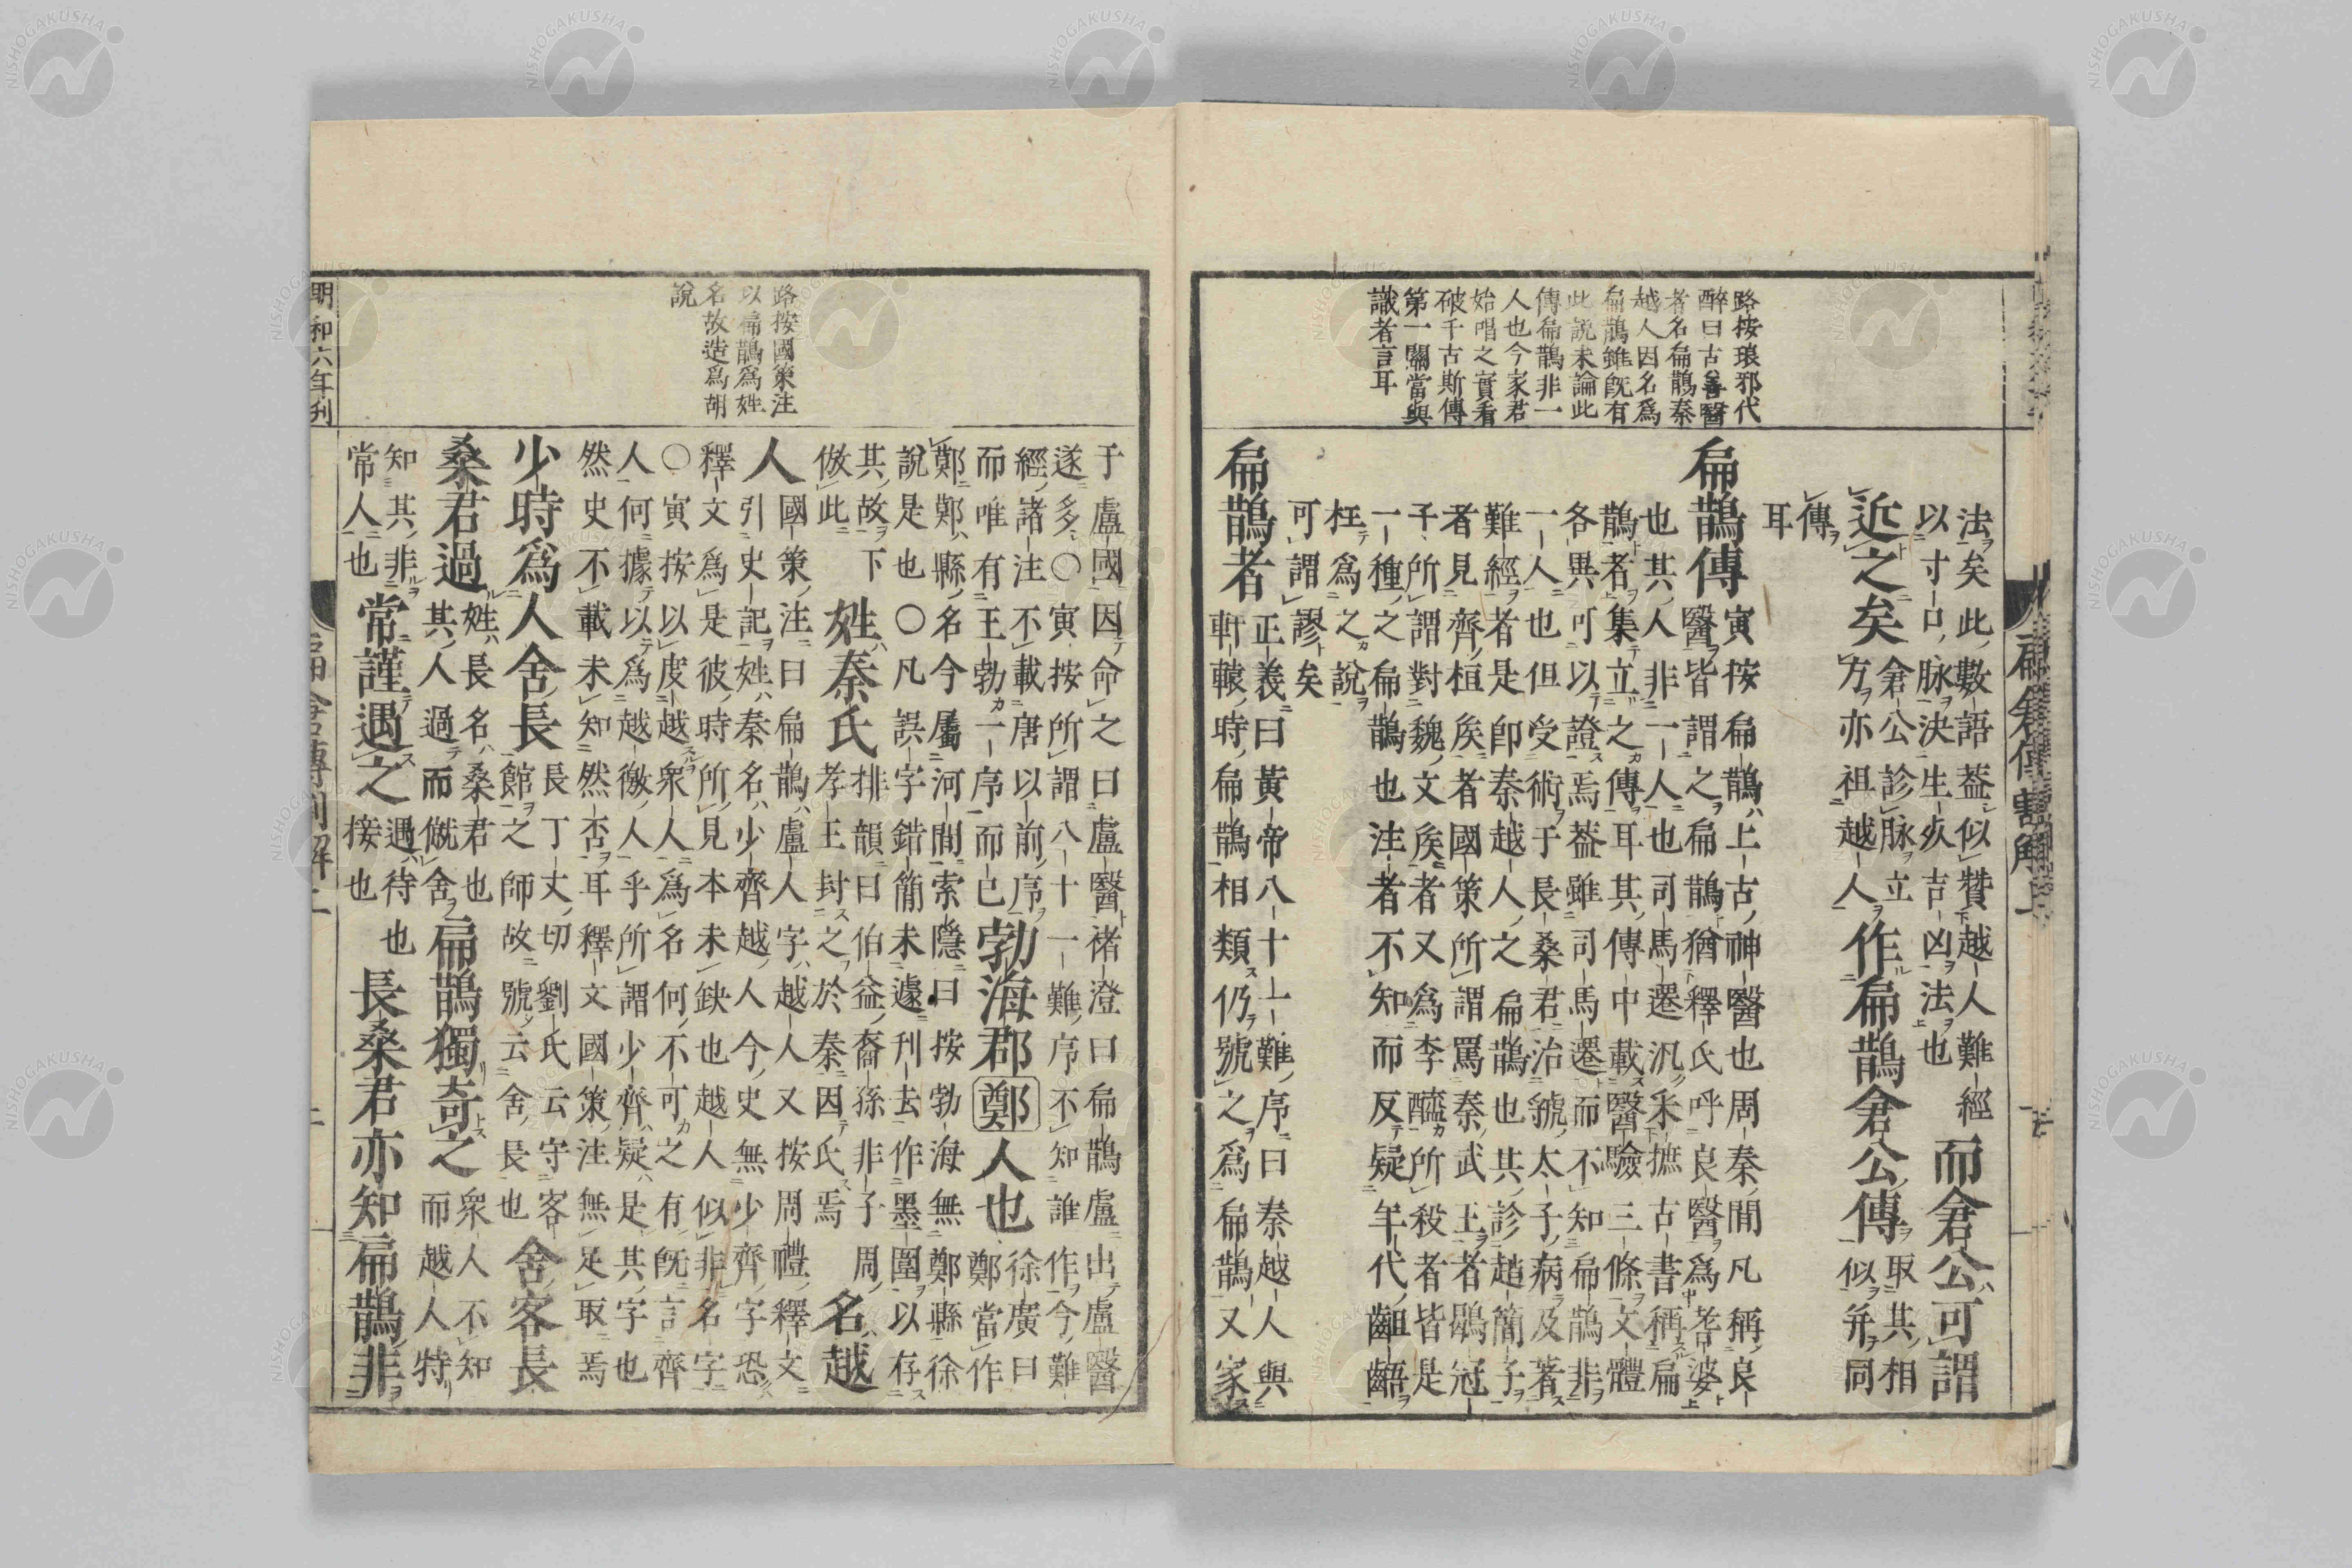 路按琅邪代
醉曰古善醫
者名扁鵲秦
越人因名爲
扁鵲雖旣有
此說未論此
傳扁鵲非一
人也今家君
始唱之實看
破千古斯傳
第一關當與
識者言耳
法矣此數語蓋似贊越人難經
以寸口脉決生死吉凶法也
而倉公可謂
近之矣
倉公診脉立
方亦祖越人
作扁鵲倉公傳
取其相
似幷同
傳
耳
扁鵲傳
寅按扁鵲上古神醫也周秦間凡稱良
醫皆謂之扁鵲猶釋氏呼良醫爲耆婆
也其人非一人也司馬遷汎采摭古書稱扁
鵲者集立之傳耳其傳中載醫驗三條文體
各異可以證焉蓋雖司馬遷而不知扁鵲非
一人也但受術于長桑君治虢太子病及著
難經者是卽秦越人之扁鵲也其診趙簡子
者見齊桓矦者國策所謂罵秦武王者鶡冠
子所謂對魏文矦者又爲李醯所殺者皆是
一種之扁鵲也注者不知而反疑年代齟齬
枉爲之說
可謂謬矣
扁鵲者
正義曰黃帝八十一難序曰秦越人與
軒轅時扁鵲相類仍號之爲扁鵲又家
路按國策注
以扁鵲爲姓
名故造爲胡
說
于盧國因命之曰盧醫褚澄曰扁鵲盧出盧醫
遂多〇寅按所謂八十一難序不知誰作今難
經諸注不載唐以前序
而唯有王勃一序而已
勃海郡鄭人也
徐廣曰
鄭當作
鄚鄚縣名今屬河間索隱曰按勃海無鄭縣徐
說是也〇凡誤字錯簡未遽刊去作墨圍以存
其故下
倣此
姓秦氏
排韻曰伯益裔孫非子周
孝王封之於秦因氏焉
名越
人
國策注曰扁鵲盧人字越人又按周禮釋文
引史記姓秦名少齊越人今史無少齊字恐
釋文爲是彼時所見本未缺也越人似非名字
〇寅按以皮越衆人爲名何不可之有旣言齊
人何據以爲越徼人乎所謂少齊疑是其字也
然史不載未知然否耳釋文國策注無足取焉
少時爲人舍長
長丁丈切劉氏云守客
館之師故號云舍長也
舍客長
桑君過
姓長名桑君也
其人過而僦舍
扁鵲獨奇之
衆人不知
而越人特
知其非
常人也
常謹遇之
遇待也
接也
長桑君亦知扁鵲非
明和六年刊
NISHOGAKUSHA